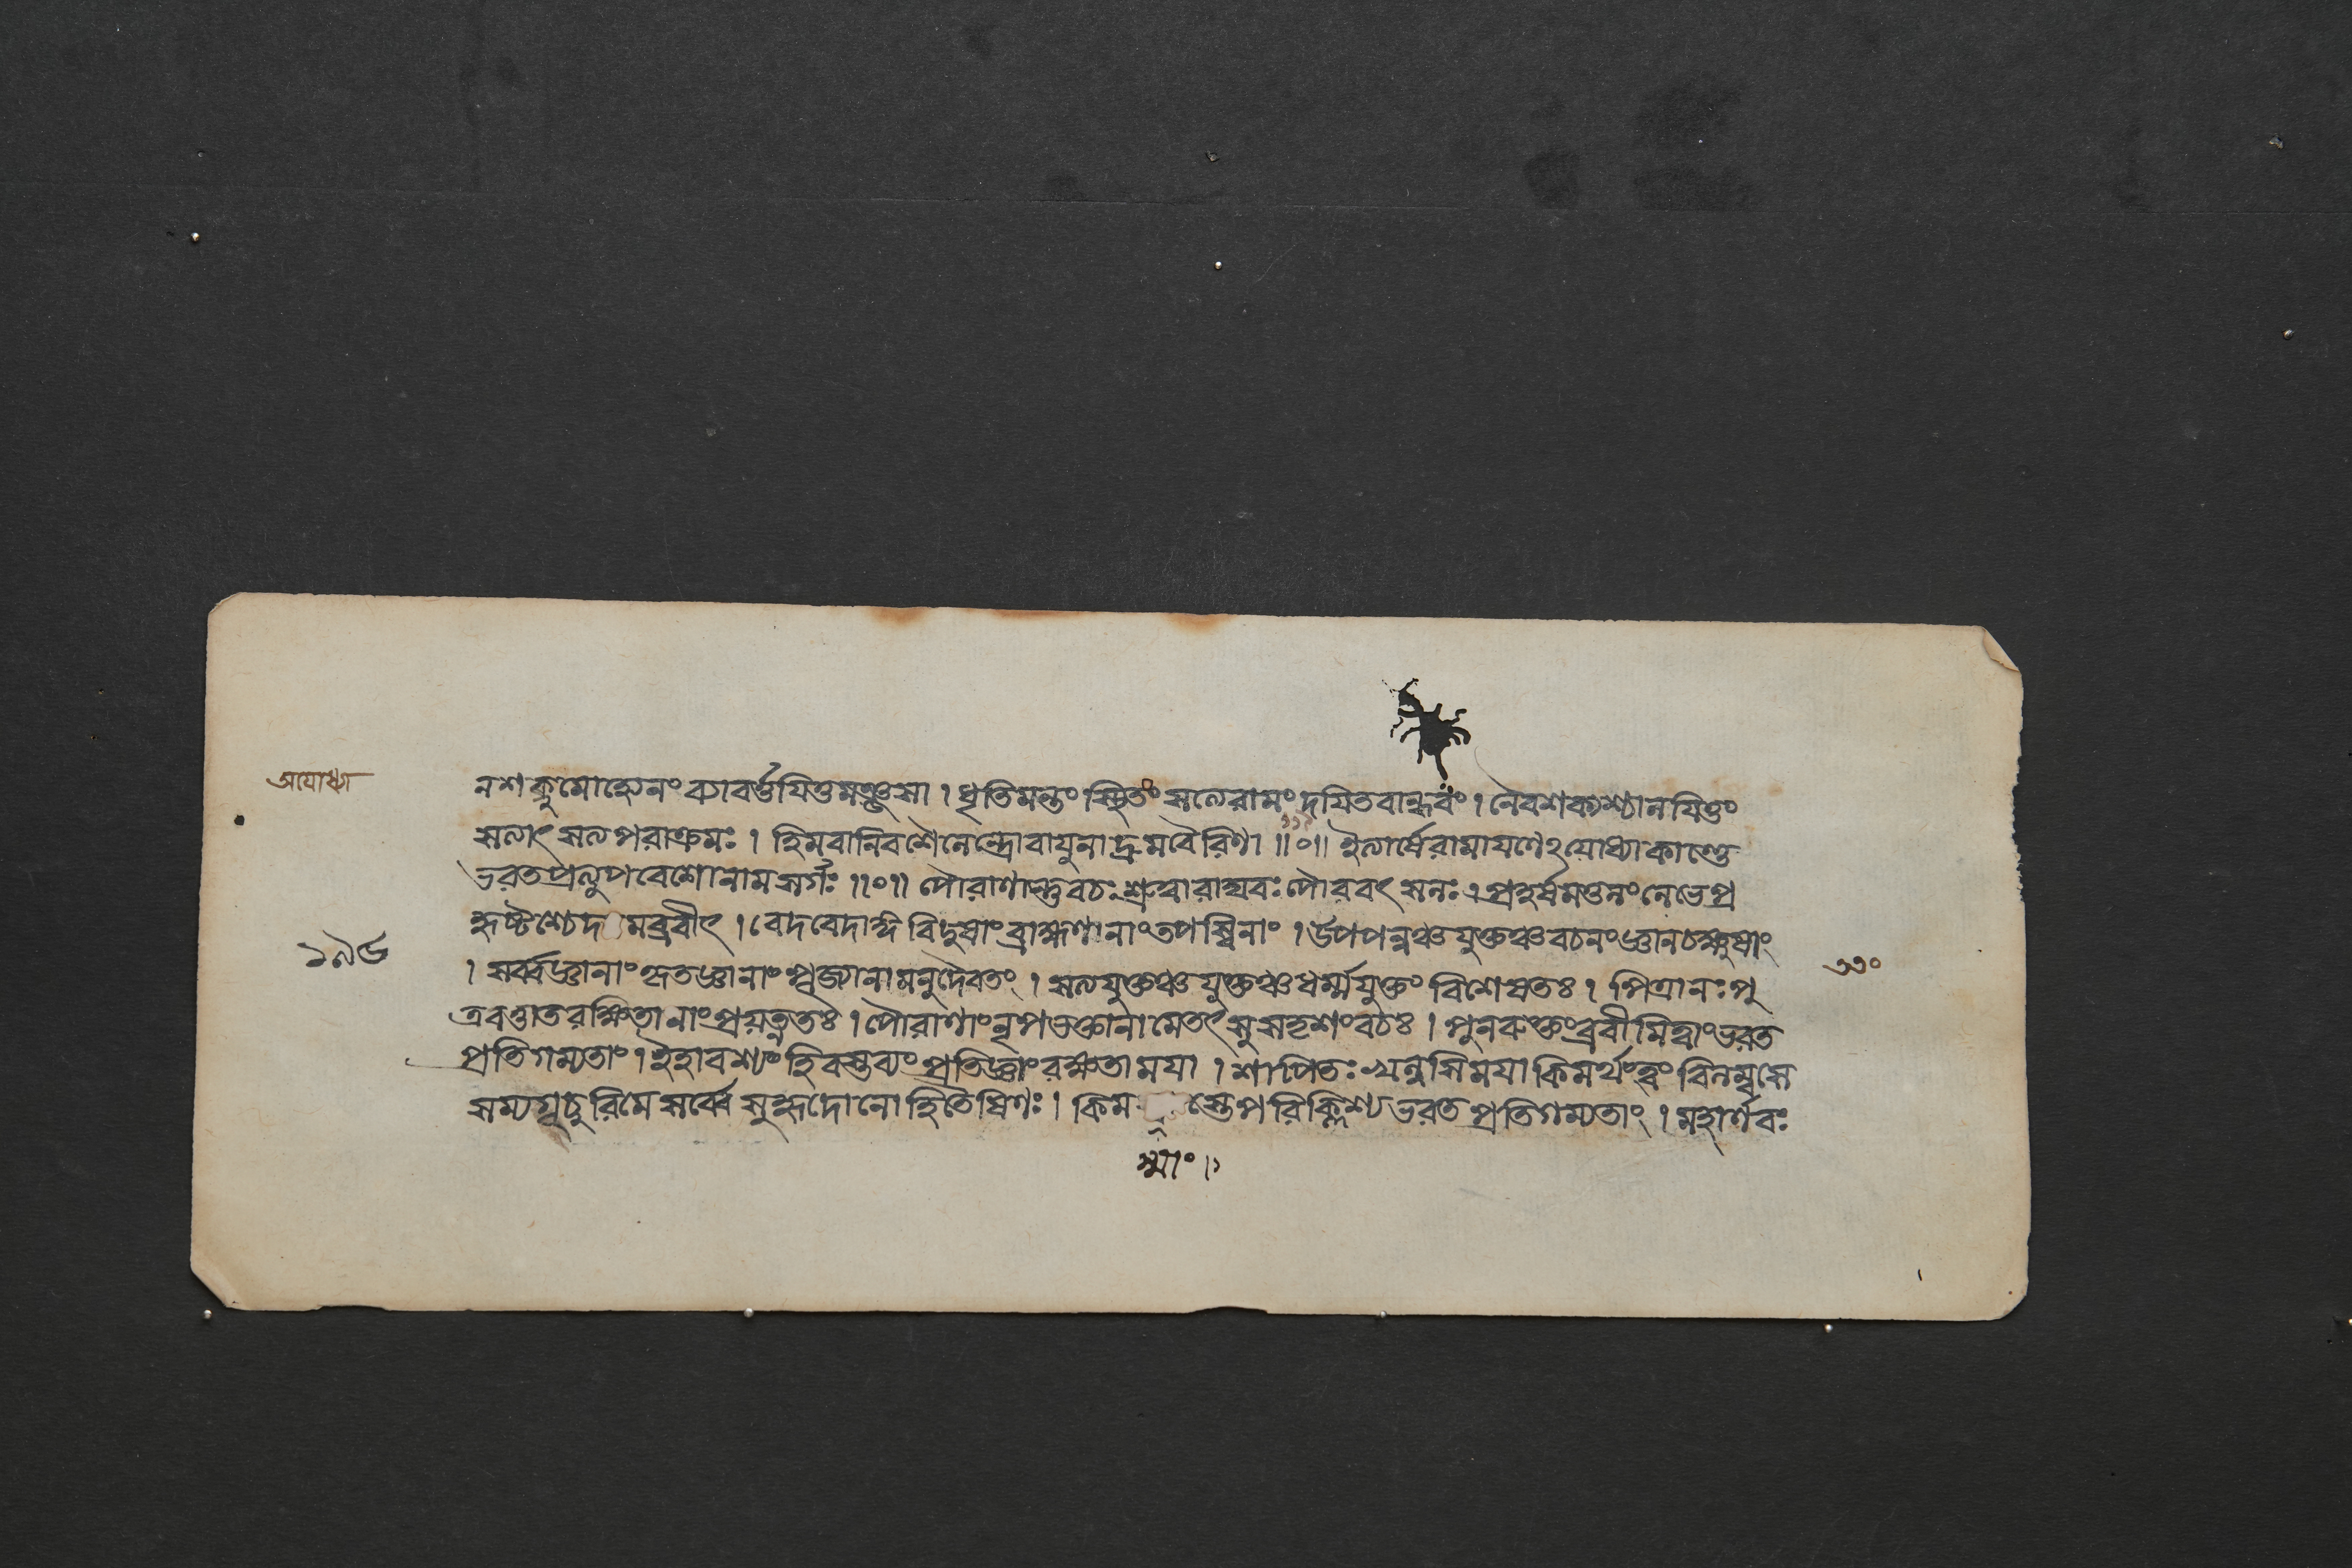 অযোধ্যা
ন শক্নুমোহ্যেনং ব্যাবর্ত্তযিতুমঞ্জসা । ধৃতিমন্তং স্থিতং সত্যেরামং দযিতবান্ধবং । নৈবশক্যশ্চানযিতুং
সত্যাৎ সত্যপরাক্রমঃ । হিমবানিবশৈলেন্দ্রোবাযুনাদ্রুমবৈরিণা ॥০॥ ইত্যার্ষেরামাযণেঽযোধ্যাকাণ্ডে
ভরতপ্রত্যুপবেশোনামসর্গঃ ॥০॥ পৌরাণান্তুবচঃশ্রুত্বারাঘবঃপৌরবৎসলঃ । প্রহর্ষমতুলংলেভেপ্র
হৃষ্টশ্চেদমব্রবীৎ । বেদবেদাঙ্গবিদুষাংব্রাহ্মণানাংতপস্বিনাং । উপপন্নঞ্চযুক্তঞ্চবচনংজ্ঞানচক্ষুষাং
১৯৬
। সর্ব্বজ্ঞানাংকৃতজ্ঞানাংপূজ্যানামনুদৈবতং । সত্যযুক্তঞ্চযুক্তঞ্চধর্ম্মযুক্তং বিশেষতঃ । পিত্রানঃপু
৩৩০
ত্রবত্তাতরক্ষিতানাংপ্রযত্নতঃ । পৌরাণাংনৃপভক্তানামেতৎসুসদৃশংবচঃ । পুনরুক্তংব্রবীমিত্বাংভরত
প্রতিগম্যতাং । ইহাবশ্যংহিবস্তব্যংপ্রতিজ্ঞাংরক্ষতামযা । শাপিতঃখলুসিমযাকিমর্থংত্বংবিলম্বসে
সম্যগূচুরিমেসর্ব্বেসুহৃদোনোহিতৈষিণঃ । কিম স্তেপরিক্লিশ্যভরতপ্রতিগম্যতাং । মহার্ণবঃ
স্মাং